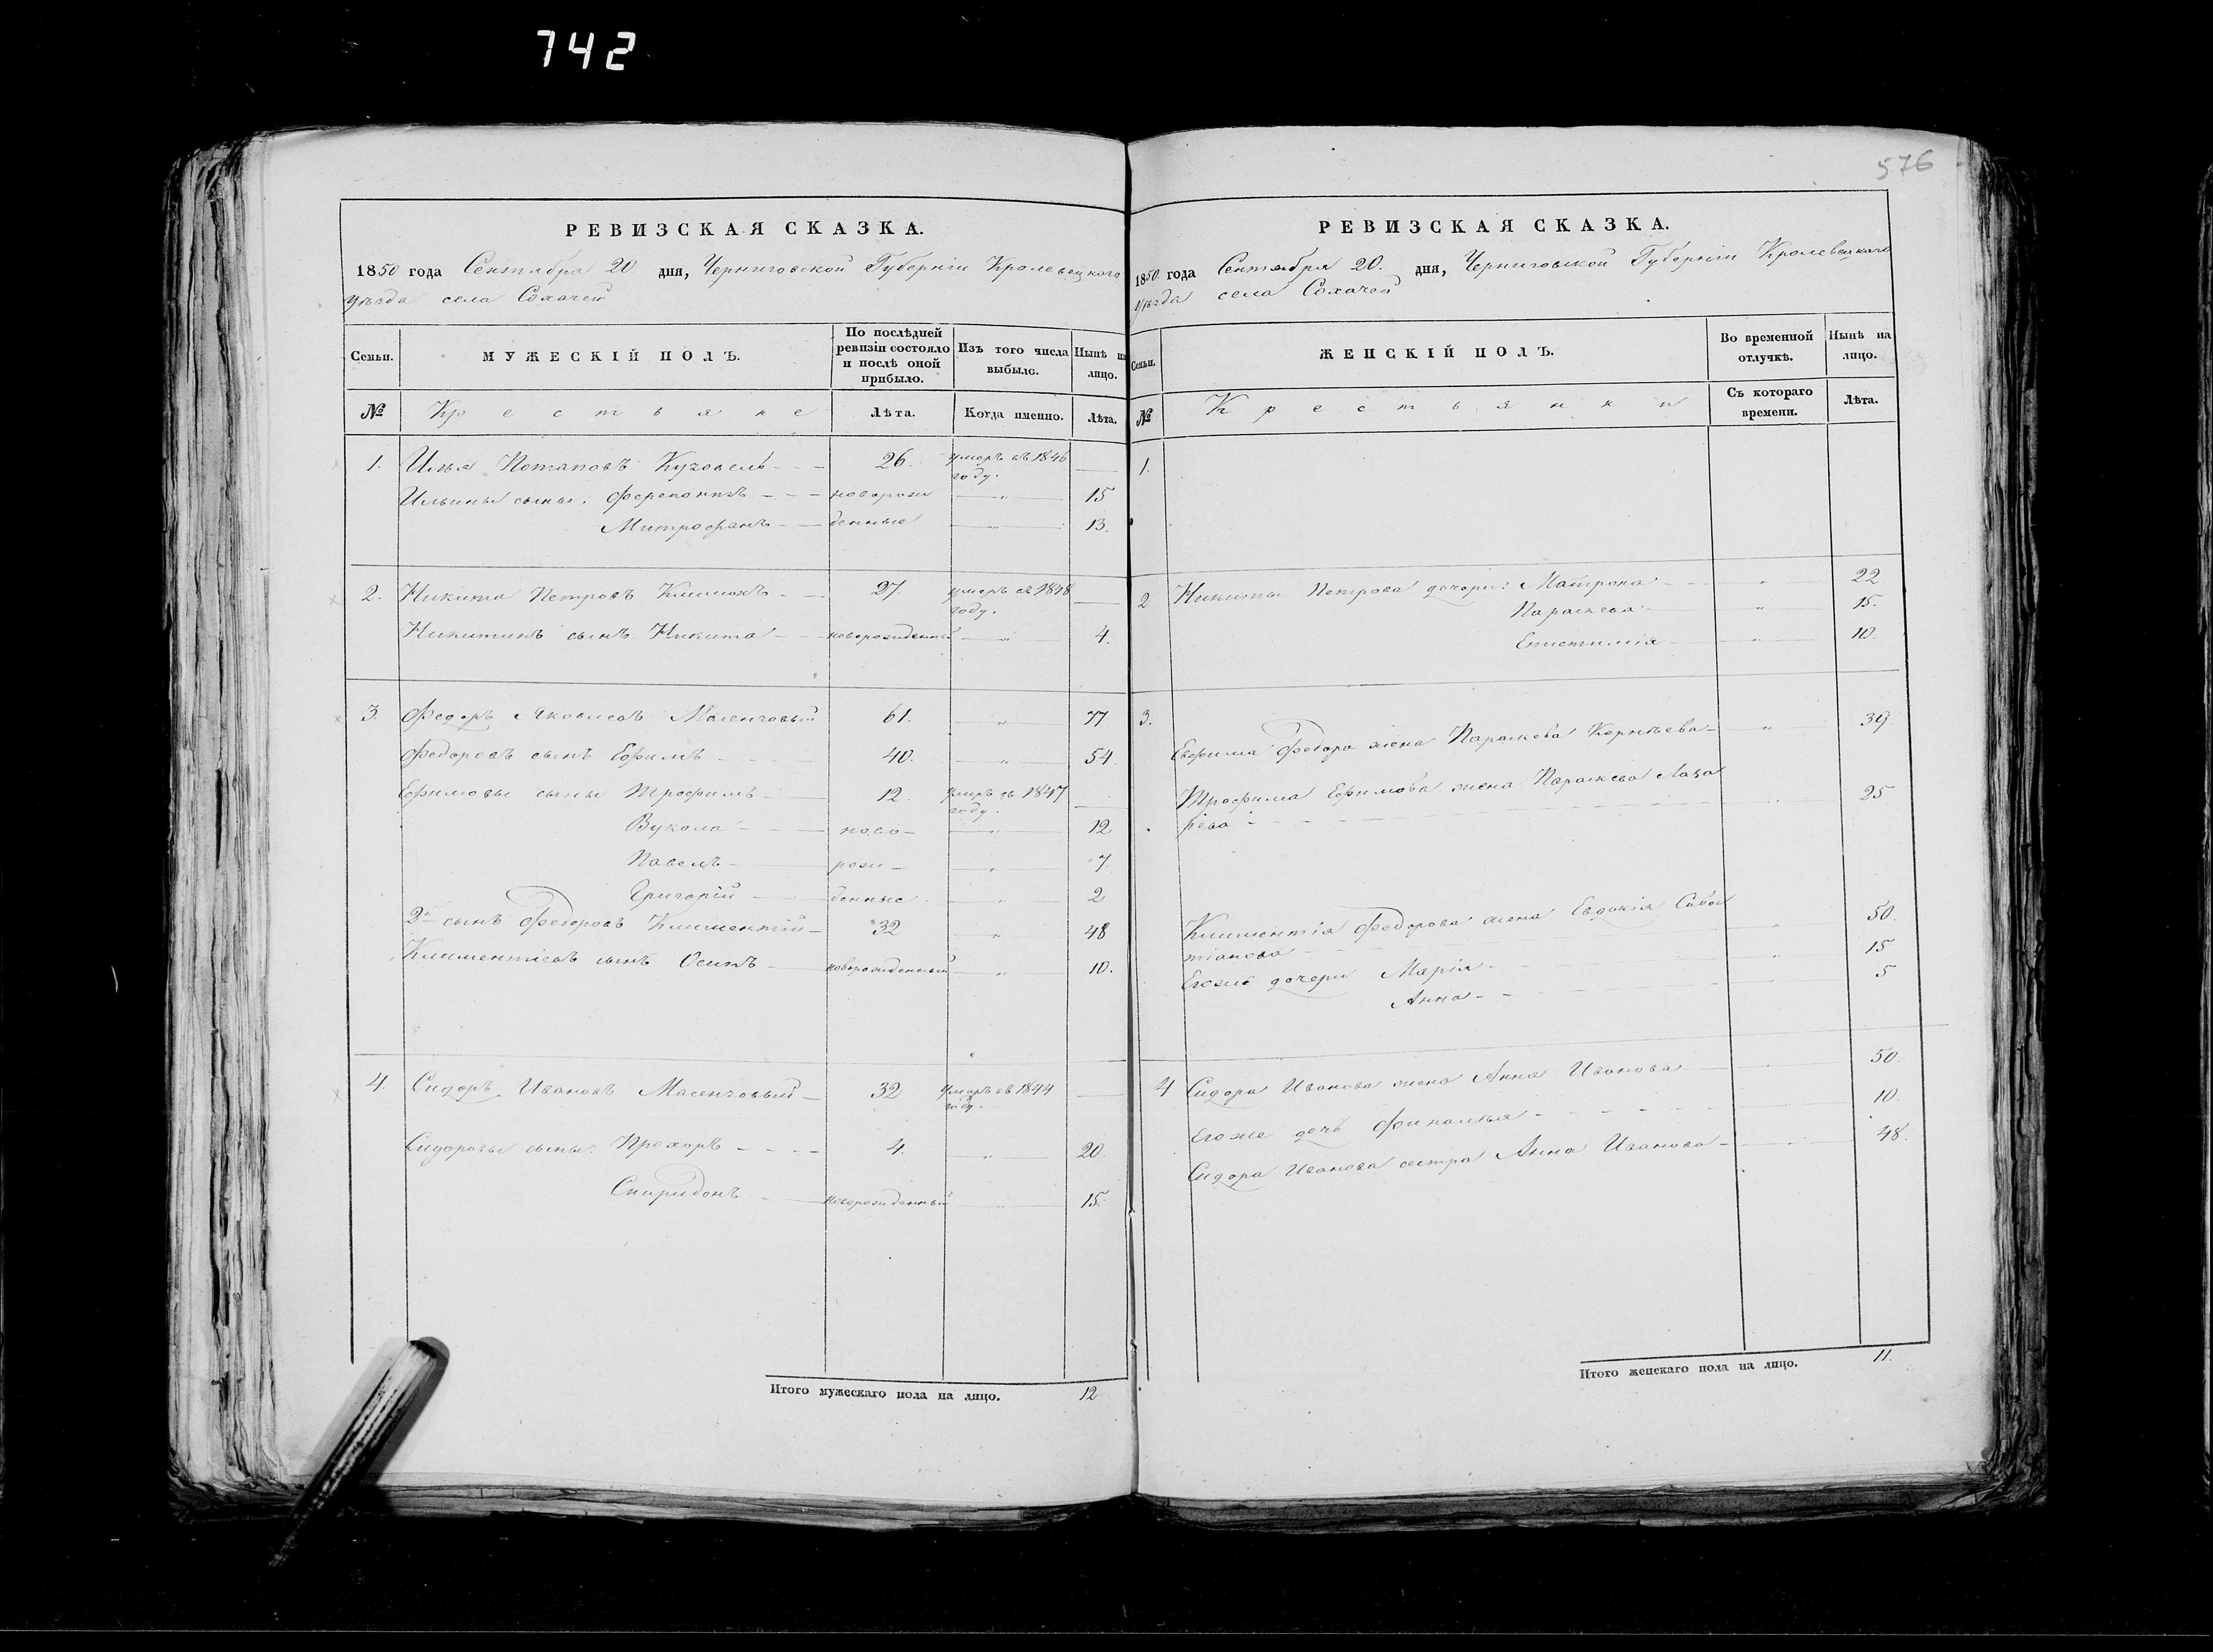 742
576
РЕВИЗСКАЯ СКАЗКА.
1850 года Сентября 20 дня, Черниговской Губернiи Кролевецкого
уѣзда села Сохачей
Семьи. МУЖЕСКIЙ ПОЛЪ. По послѣдней ревизiи состояло и послѣ оной прибыло. Изъ того числа выбыло. Нынѣ на лицо.
№ Крестьяне Лѣта. Когда именно. Лѣта.
1. Илья Потаповъ 26. умеръ въ 1846 году.
Ильины сыны: Ферепонтъ новорож 15
Митрофанъ денные 13.
2. Никита Петровъ Климокъ 27. умеръ въ 1848 году.
Никитинъ сынъ Никита новорожденный 4.
3. Федоръ Яковлевъ 61. 77
Федоровъ сынъ Ефимъ 40. 54.
Ефимовы сыны Трофимъ 12. умеръ въ 1847 году.
Вукола ново 12
Павелъ рож 7
Григорiй денные 2
2й сынъ Федоровъ Климентiй 32 48
Климентiевъ сынъ Осипъ новорожденный 10.
4. Сидоръ Ивановъ 32 умеръ въ 1844 году.
Сидоровы сыны: Прохоръ 4. 20.
Спиридонъ новорожденный 15.
Итого мужескаго пола на лицо. 12
РЕВИЗСКАЯ СКАЗКА.
1850 года Сентября 20. дня, Черниговской Губернiи Кролевецкаго
уѣзда села Сохачей
Семьи. ЖЕНСКIЙ ПОЛЪ. Во временной отлучкѣ. Нынѣ на лицо.
№ Крестьянки Съ котораго времени. Лѣта.
1.
2 Никиты Петрова дочери: Матрона 22
Параскева 15.
Епистимiя 10.
3. Евфима Федора жена Параскева Корнѣева 39.
Трофима Ефимова жена Параскева Лаза
рева 25
Климентiя Федорова жена Евдокiя Сава
тiанова 50.
Егоже дочери Марiя 15
Анна 5
4 Сидора Иванова жена Анна Иванова 50.
Егоже дочь 10.
Сидора Иванова сестра Анна Иванова 48.
Итого женскаго пола на лицо. 11.